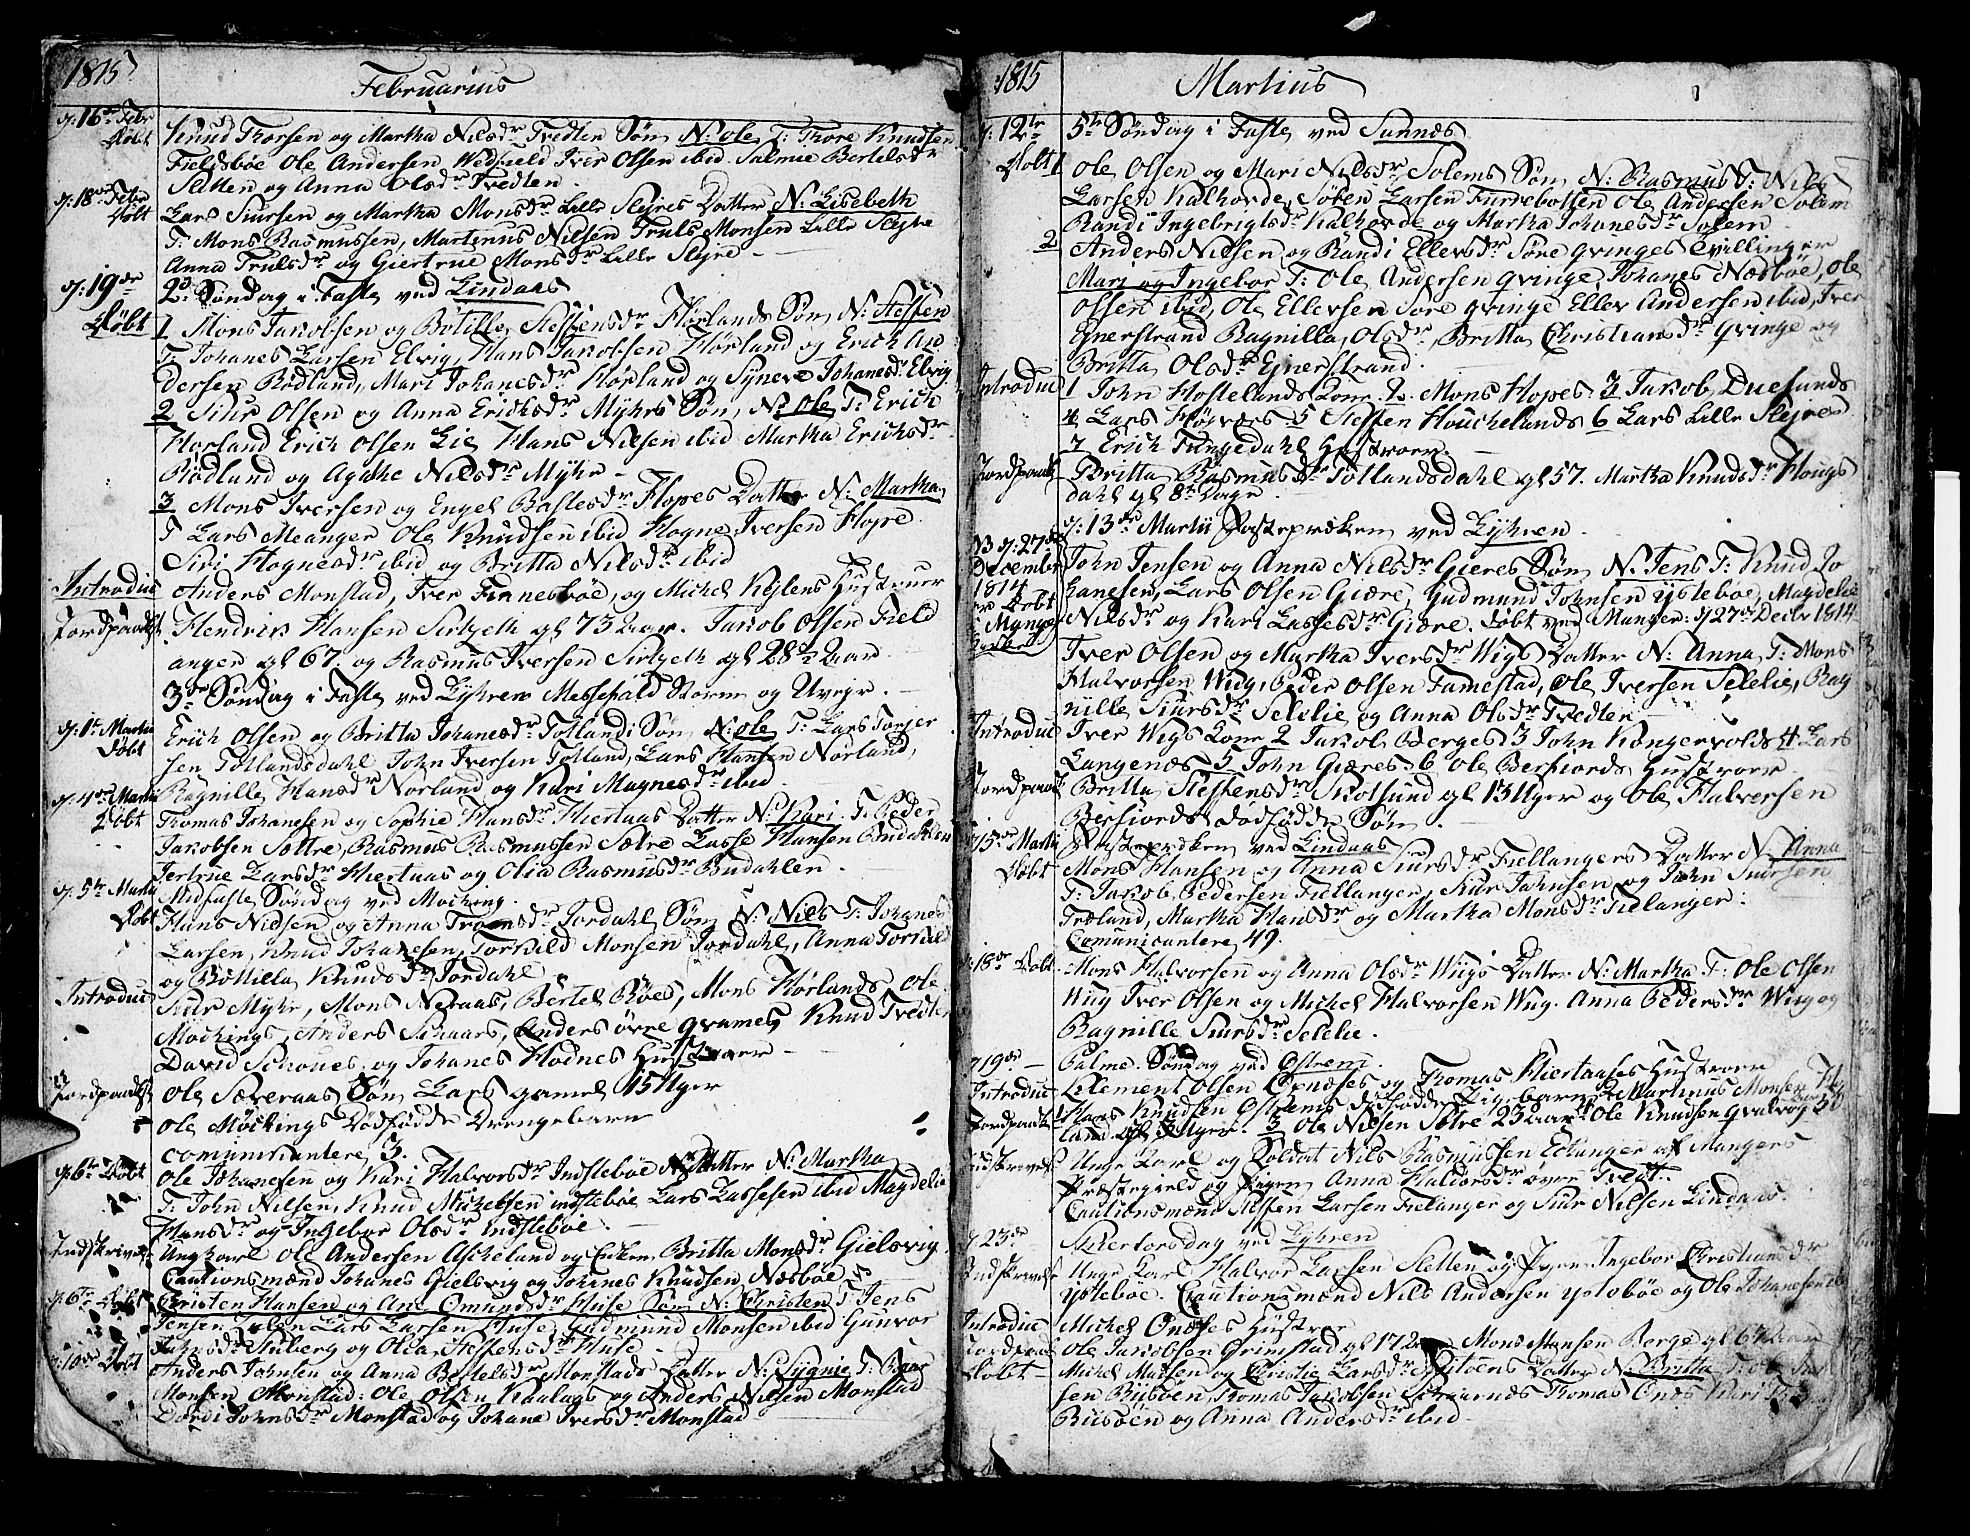 1815
Februarius
d: 16de Febr Knud Thorsen og Martha Nilsdr Tvedten Søn N: Ole T: Thore Knudsen
Døbt Fieldsbøe Ole Andersen Iver Olsen ibid. Salmie Bertelsdr
Sletten og Anna Olsdr Tvedten.
d: 18de Febr
Døbt Lars Siursen og Martha Monsdr Lille Slejres Datter N: Lisebeth
T: Mons Rasmussen, Martinus Nilsen Truls Monsen Lille Slejre
Anna Trulsdr og Giertrue Monsdr Lille Slejre
d: 19de 2d Søndag i Faste ved Lindaas
Døbt 1 Mons Jakobsen og Bötille Steffensdr Hørlands Søn N: Steffen
T: Johanes Larsen Elvig, Hans Jakobsen Hørland og Erich An
dersen Rødland, Mari Johanesdr Hørland og Syneve Johanesdr Elvig
2 Siur Olsen og Anna Erichsdr Myhrs Søn, N: Ole T: Erich
Horland Erich Olsen Lie Hans Nilsen ibid Martha Erichsdr
Rødland og Agathe Nilsdr Myhr
3 Mons Iversen og Engel Bastesdr Hopes Datter N: Martha
T Lars Meanger Ole Knudsen ibid Hogne Iversen Hope
Siri Hognesdr ibid og Britta Nilsdr ibid
Introduc Anders Monstad, Iver Finnesbøe, og Michel Kejlens Hustruer
Jordpaakst Hendrik Hansen gl 73 Aar. Jakob Olsen Field
anger gl 67. og Rasmus Iversen gl 28½ Aar
3de Søndag i Faste ved Lyhren Messefald Storm og Uvejr.
d: 1te Martii Erich Olsen og Britta Johanesdr Totland Søn N: Ole T: Lars Torger
Døbt sen Totlandsdahl John Iversen Totland, Lars Hansen Norland,
Ragnille Hansdr Norland og Kari Magnesdr ibid
d: 4de Martii
Døbt Thomas Johanesen og Sophie Hansdr Hiertaas Datter N: Kari. T: Peder
Jakobsen Sættre, Rasmus Rasmussen Sætre Lasse Hansen Budahlen
Jertrue Larsdr Hiertaas og Olia Rasmusdr Budahlen.
d: 5te Martii Midfaste Søndag ved Mocking.
Døbt Hans Nielsen og Anna Jordahl Søn N: Nils T: Johanes
Larsen, Knud Johanesen, Torkild Monsen Jordahl, Anna Torkild
og Bottilla Knudsdr Jordahl
Introduc Siur Myhr, Mons Neraas, Bertel Bøes, Mons Hørlands, Ole
Møckings, Anders Skaars, Anders øvre Qvames Knud Tvedten
David Schoues og Johanes Hodnes Hustruer
Jordpaakst Ole Sæveraas Søn Lars gamel 15 Uger
Ole Møckings Dødfødde Drengebarn
comunicantere 3.
d: 6te Døbt Ole Johanesen og Kari Halvorsdr Indstebøe Datter N: Martha
T: John Nilsen, Knud Michelsen indstebøe Lars Lassesen ibid Magdelie
Hansdr og Ingebor Olsdr Indstebøe.
Indskrivels Ungkarl Ole Andersen Askeland og Enken Britta Monsdr Gielsvig
Cautionsmænd Johanes Gielsvig og Johanes Knudsen Næsbøe
d: 6te Døbt Christen Hansen og Ane Omundsdr Huse Søn N: Christen T: Jens
Jensen Lars Larsen Huse Gudmund Monsen ibid Gunvor
Johnsdr Stuberg og Olea Steffensdr Huse
d: 10de Døbt Anders Johnsen og Anna Bertelsdr Monstads Datter N: Sygnie T:
Monsen Monstad: Ole Olsen Kaalaas og Anders Nilsen Monstad
Dordi Johnsdr Monstad og Johane Iversdr Monstad
1815
Martius
d: 12te 5te Søndag i Faste ved Sannæs
Døbt 1 Ole Olsen og Mari Nilsdr Solems Søn N: Rasmus T: Nils
Larsen Kalhovde, Søren Larsen Furrebotten Ole Andersen Solem
Randi Ingebrigtsdr Kalhovde og Martha Johanesdr Solem
2 Anders Nilsen og Randi Ellevsdr Søre Qvinges Tvillinger
Mari og Ingebor T: Ole Andersen Qvinge, Johanes Næsbøe, Ole
Olsen ibid, Ole Ellevsen Søre Qvinge Ellev Andersen ibid, Iver
Egnerstrand Ragnilla Olsdr, Britta Christiansdr Qvinge og
Britta Olsdr Egnerstrand.
Introduc 1 John Hostelands Kone. 2. Mons Hopes 3 Jakob Duesunds
4 Lars 5 Steffen Houchelands 6 Lars Lille Slejres
7 Erich Tungedahl Hustruer.
Jordpaakst Britta Rasmusdr Totlandsdahl gl 57. Martha Knudsdr Hougs
dahl gl 8te Dage
d: 13de Martii Fasteprøken ved Lyhren.
NB d: 27de
December
1814
er Døbt
i Manger
John Jensen og Anna Nilsdr Gieres Søn N: Jens T: Knud Jo
hanesen, Lars Olsen Giære, Gudmund Johnsen ystebøe, Magdelie
Nilsdr og Kari Lassesdr Giære. Døbt ved Manger: d 27de Decbr 1814
Iver Olsen og Martha Iversdr Wigs Datter N: Anna, T: Mons
Halvorsen Wiig, Peder Olsen Famestad, Ole Iversen Selelie, Rag
nille Siursdr Selelie og Anna Olsdr Tvedten
Introduc Iver Wigs Kone 2 Jakob Berges 3 John Kongsvolds 4 Lars
Langenæs 5 John Giæres 6 Ole Berfiords Hustruer
Jordpaakst Britta Steffensdr Skotsund gl 13 Uger og Ole Halvorsen
Berfiords Dødfødde Søn.
d 15de Martii Fasteprøken ved Lindaas
Døbt Mons Hansen og Anna Siursdr Fiellangers Datter N: Anna
T: Jakob Pedersen Fiellanger, Siur Johnsen og John Siursen
Træland, Martha Hansdr og Martha Monsdr Fielanger.
Comunicantere 49.
d: 18de Døbt Mons Halvorsen og Anna Olsdr Wiigs Datter N: Martha T: Ole Olsen
Wiig Iver Olsen og Michel Halvorsen Wiig. Anna Pedersdr Wiig og
Ragnille Siursdr Selelie.
d 19de Palme Søndag ved Østrem
Introduc Clement Olsen og Thomas Hiertaases Hustruer
Jordpaakst Hans Knudsen Østrems dødfødde Pigebarn 2 Martinus Monsen
land gl 3 Uger. 3 Ole Nilsen Sætre 23 aar 4 Ole Knudsen Qvalvog 50
Indskrivels Unge Karl og Soldat Nils Rasmussen Echanger af Mangers
Præstegield og Pigen Anna Haldorsdr øvre Tvedt.
Cautionsmænd Steffen Larsen Fielanger og Siur Nilsen Lindaas.
d 23de Skiertorsdag ved Lyhren
Indskrivelse Unge Karl Halvor Larsen Sletten og Pigen Ingebor Christiansdr
ystebøe. Cautionsmænd Nils Andersen ystebøe og Ole Johanesen ib
Introduc Michel Onæses Hustrue
Jordpaa Ole Jakobsen Grimstad gl 17 Mons Monsen Berge gl 67 Aar
Døbt Michel Madsen og Christie Larsdr Datter N: Britta T: Ole
sen Biisøen, Thomas Jakobsen Skaarnes Thomas Onæs Kari
Biisøen og Anna Andersdr ibid